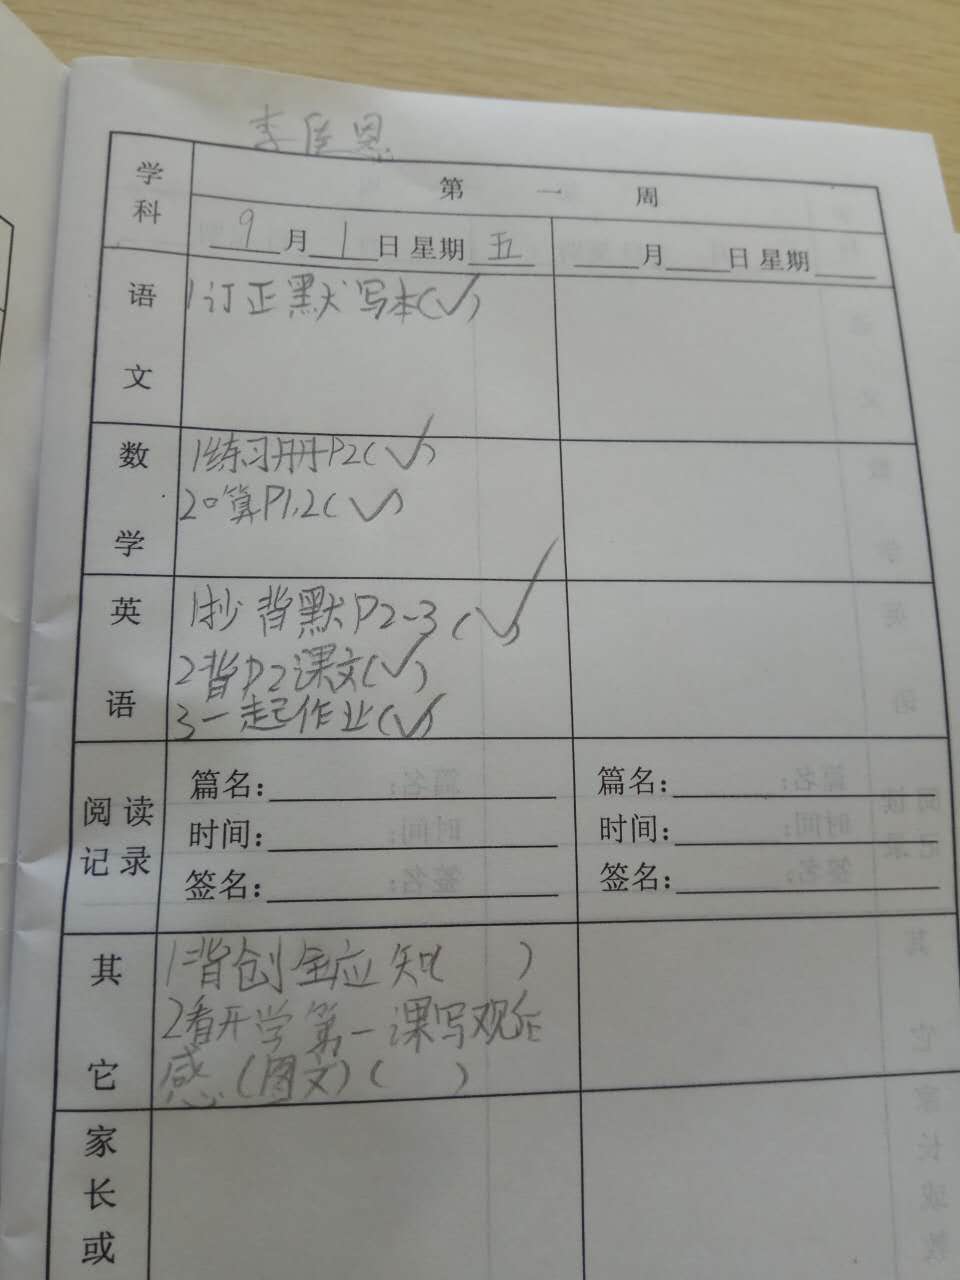 李佳恩
学科
第一周
9月1日星期五
___月___日星期___
语文
1订正默写本(✓)
数学
1练习册P2(✓)
2口算P1,2(✓)
英语
1抄背默P2-3(✓)
2背P2课文(✓)
3一起作业(✓)
阅读记录
篇名:
时间:
签名:
篇名:
时间:
签名:
其它
1背创全应知( )
2看开学第一课写观后
感(图文)( )
家长或